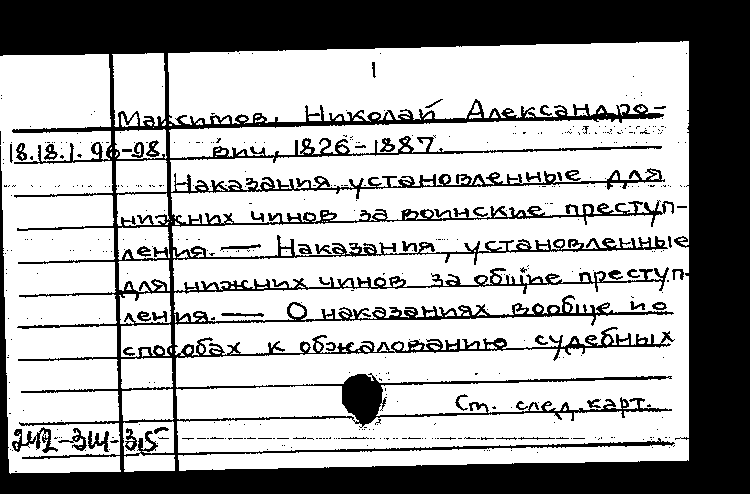 1
Максимов, Николай Александро-
18.18.1.96-98. вич, 1826-1887.
Наказания, установленные для
нижних чинов за воинские преступ-
ления. — Наказания, установленные
для нижних чинов за общие преступ-
ления. — О наказаниях вообще и о
способах к обжалованию судебных
Ст. след. карт.
242-314-315